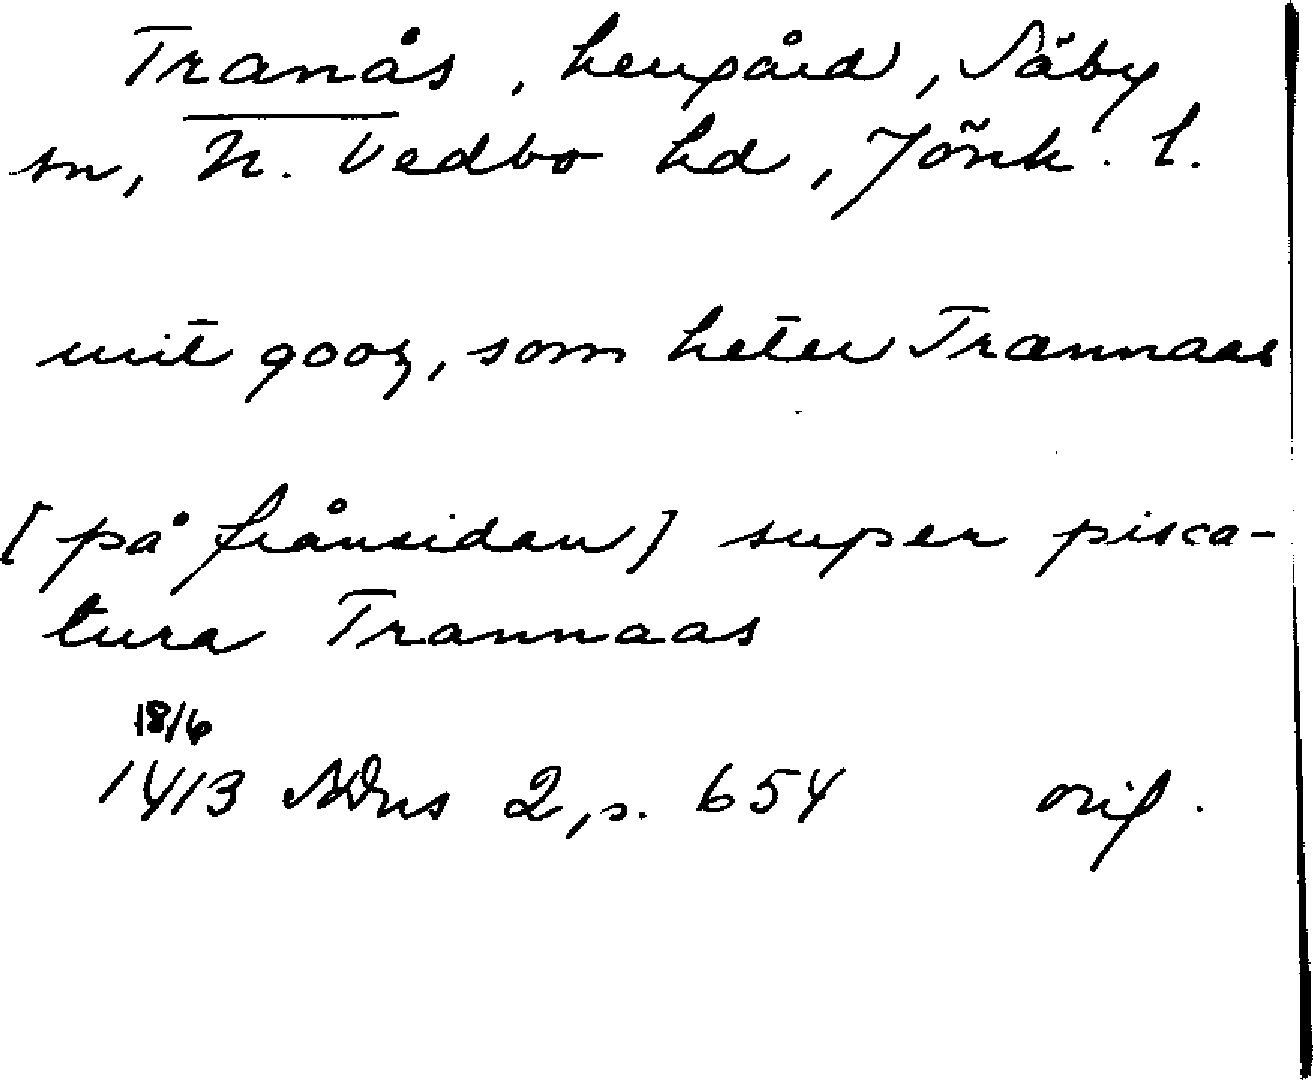 Tranås, herrgård, Säby
sn, N. Vedbo hd, Jönk. l.
mit gooz, som heter Trannaas
[på frånsidan] super pisca-
tura Trannaas
18/6
1413 SDns 2, s. 654 orig.